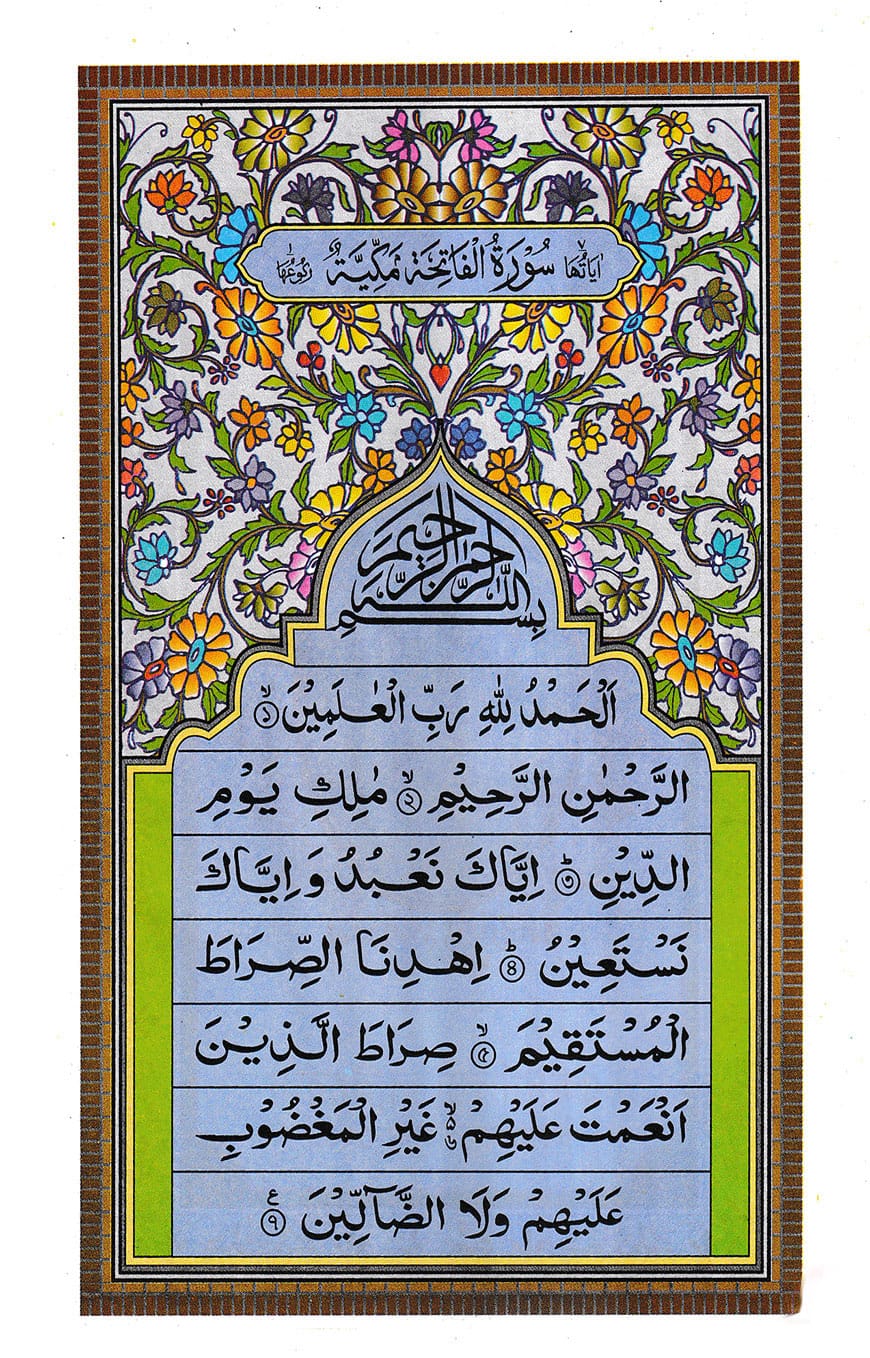 اٰيَاتُهَا ٧ سُوْرَةُ الْفَاتِحَةِ مَكِّيَّةٌ رُكُوْعُهَا ١
بِسْمِ اللّٰهِ الرَّحْمٰنِ الرَّحِيْمِ
اَلْحَمْدُ لِلّٰهِ رَبِّ الْعٰلَمِيْنَ ۙ﴿۱﴾
الرَّحْمٰنِ الرَّحِيْمِ ۙ﴿۲﴾ مٰلِكِ يَوْمِ
الدِّيْنِ ؕ﴿۳﴾ اِيَّاكَ نَعْبُدُ وَ اِيَّاكَ
نَسْتَعِيْنُ ؕ﴿۴﴾ اِهْدِنَا الصِّرَاطَ
الْمُسْتَقِيْمَ ۙ﴿۵﴾ صِرَاطَ الَّذِيْنَ
اَنْعَمْتَ عَلَيْهِمْ ۙ۬ۦ غَيْرِ الْمَغْضُوْبِ
عَلَيْهِمْ وَلَا الضَّآلِّيْنَ ع﴿۹﴾